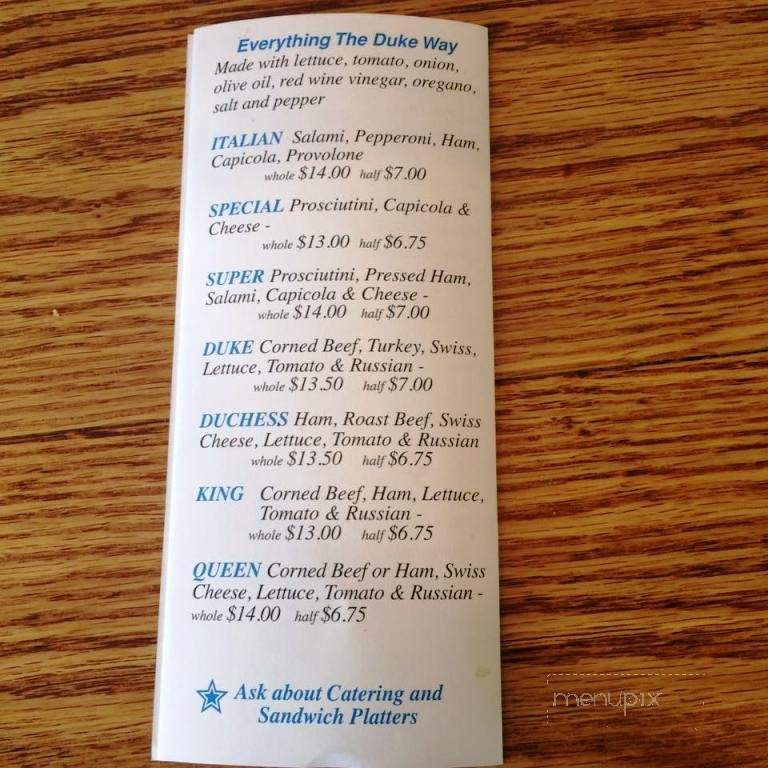 Everything The Duke Way
Made with lettuce, tomato, onion,
olive oil, red wine vinegar, oregano,
salt and pepper
ITALIAN Salami, Pepperoni, Ham,
Capicola, Provolone
whole $14.00 half $7.00
SPECIAL Prosciutini, Capicola &
Cheese -
whole $13.00 half $6.75
SUPER Prosciutini, Pressed Ham,
Salami, Capicola & Cheese -
whole $14.00 half $7.00
DUKE Corned Beef, Turkey, Swiss,
Lettuce, Tomato & Russian -
whole $13.50 half $7.00
DUCHESS Ham, Roast Beef, Swiss
Cheese, Lettuce, Tomato & Russian
whole $13.50 half $6.75
KING Corned Beef, Ham, Lettuce,
Tomato & Russian -
whole $13.00 half $6.75
QUEEN Corned Beef or Ham, Swiss
Cheese, Lettuce, Tomato & Russian -
whole $14.00 half $6.75
Ask about Catering and
Sandwich Platters
menupix